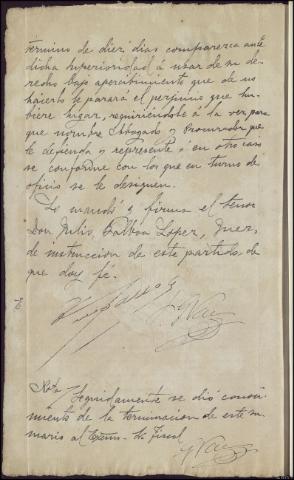 término de diez días comparezca ante
dicha superioridad á usar de su de
recho bajo apercibimiento que de no
hacerlo le parará el perjuicio que hu
biere lugar, requiriéndole á la vez para
que nombre Abogado y Procurador que
le defienda y represente ó en otro caso
se conforme con los que en turno de
oficio se le designen.
Lo mandó y firma el Señor
Don Julio Balboa Lopez, Juez
de instruccion de este partido de
que doy fé.
Nota
Seguidamente se dió conoci
miento de la terminacion de este su
mario al Excmo. Sr. Fiscal